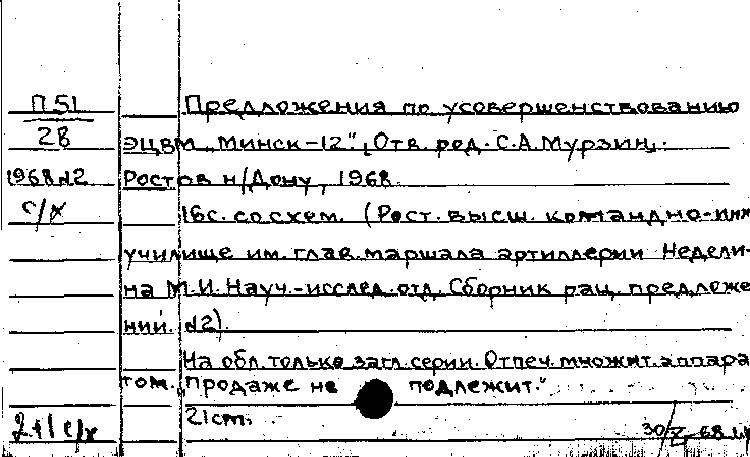 П51
28
1968 №2
с/х
Предложения по усовершенствованию
ЭЦВМ „Минск-12", Отв. ред. С.А. Мурзин.
Ростов н/Дону, 1968.
16с. со схем. (Рост. высш. командно-инж
училище им. глав. маршала артиллерии Недели-
на М.И. Науч.-исслед. отд. Сборник рац. предложе
ний. №2).
На обл. только загл. серии. Отпеч. множит. аппара
том. „Продаже не подлежит."
21cm.
2+1 с/х